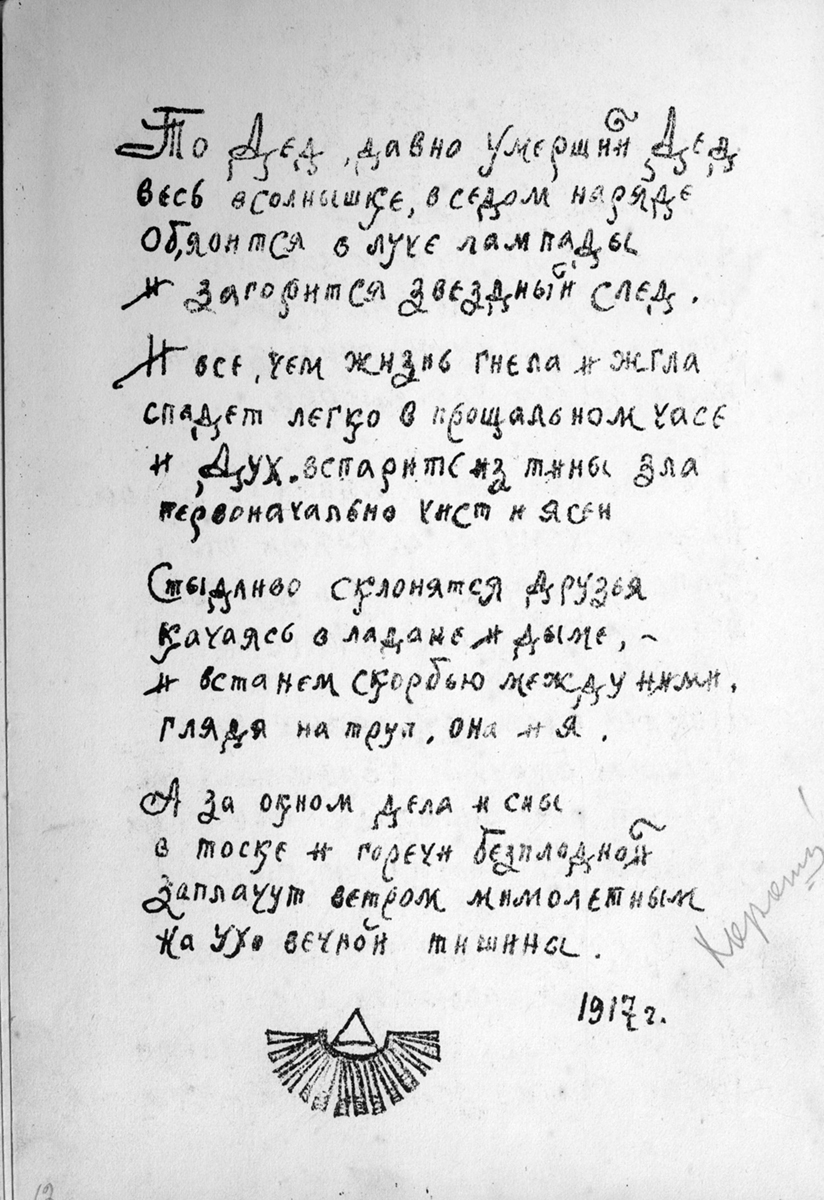 То Дед, давно умерший Дед
весь в солнышке, в седом наряде
Объяснится в луче лампады
и загорится звездный след.
И все, чем жизнь гнела и жгла
спадет легко в прощальном часе
и Дух вспарит из тины зла
первоначально чист и ясен
Стыдливо склонятся друзья
качаясь в ладане и дыме, –
и встанем скорбью между ними.
глядя на труп, она и я.
А за окном дела и сны
в тоске и горечи безплодной
заплачут ветром мимолетным
на ухо вечной тишины.
1917 г.
Хорош!
12